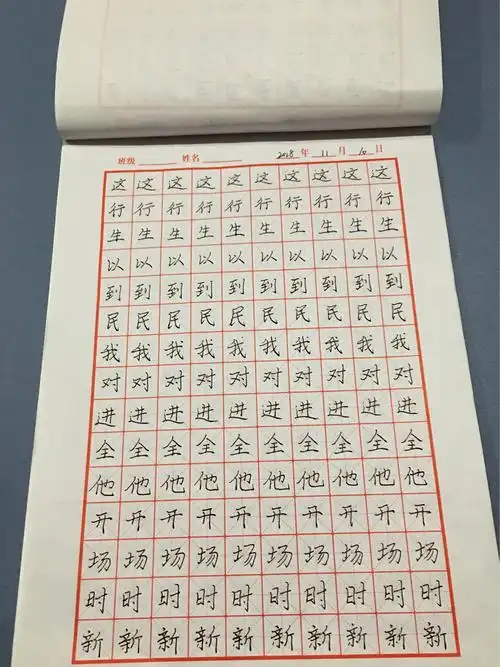 班级 姓名 2018年 11月 10日
这这这这这这这这这这
行行行行行行行行行行
生生生生生生生生生生
以以以以以以以以以以
到到到到到到到到到到
民民民民民民民民民民
我我我我我我我我我我
对对对对对对对对对对
进进进进进进进进进进
全全全全全全全全全全
他他他他他他他他他他
开开开开开开开开开开
场场场场场场场场场场
时时时时时时时时时时
新新新新新新新新新新